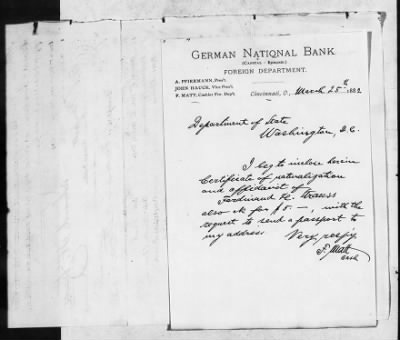 GERMAN NATIONAL BANK
FOREIGN DEPARTMENT.
A. PFIRRMANN, Pres't.
JOHN HAUCK, Vice Pres't.
F. MATT, Cashier For. Dep't.
Cincinnati, O., March 25th 1889
Department of State
Washington, D.C.
I beg to inclose herein
Certificate of naturalization
and affidavit of
Ferdinand Strauss
also ck for $5.—, with the
request to send a passport to
my address. Very respy.
F. Matt
Cash